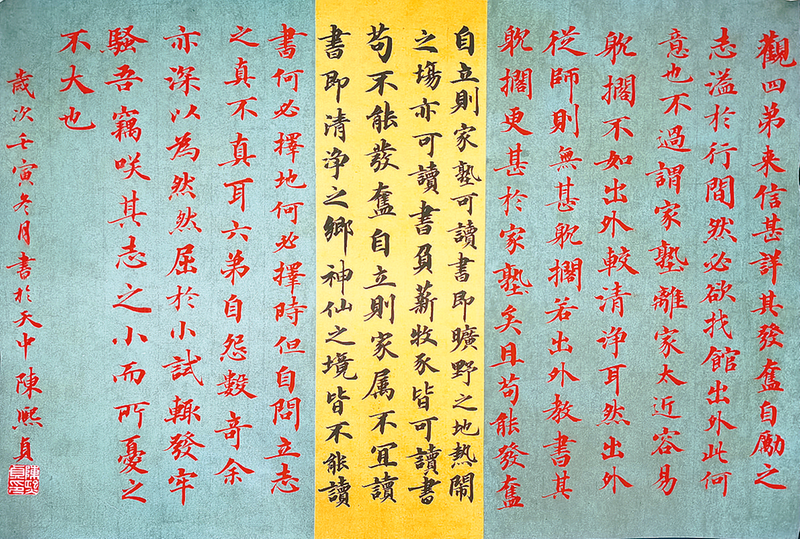 觀四弟来信甚詳其發奮自勵之
志溢於行間然必欲找館出外此何
意也不過謂家塾離家太近容易
躭擱不如出外較清諍耳然出外
從師則無甚躭擱若出外教書其
躭擱更甚於家塾矣且苟能發奮
自立則家塾可讀書即曠野之地熱鬧
之場亦可讀書負薪牧豕皆可讀書
苟不能發奮自立則家属不宜讀
書即清浄之鄉神仙之境皆不能讀
書何必擇地何必擇時但自問立志
之真不真耳六弟自怨數奇余
亦深以為然然屈於小試輙發牢
騷吾竊咲其志之小而所憂之
不大也
歲次壬寅冬月書於天中陳熙貞